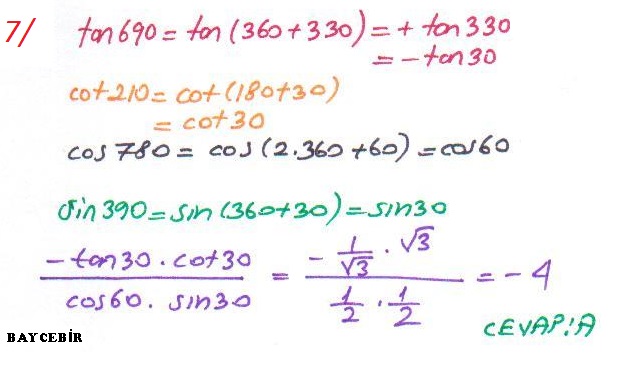 7/ tan690 = tan(360+330) = + tan330
= - tan30
cot210 = cot(180+30)
= cot30
cos780 = cos(2.360+60) = cos60
sin390 = sin(360+30) = sin30
-tan30 . cot30 / cos60 . sin30 = - 1/√3 . √3 / 1/2 . 1/2 = - 4
CEVAP:A
BAYCEBİR